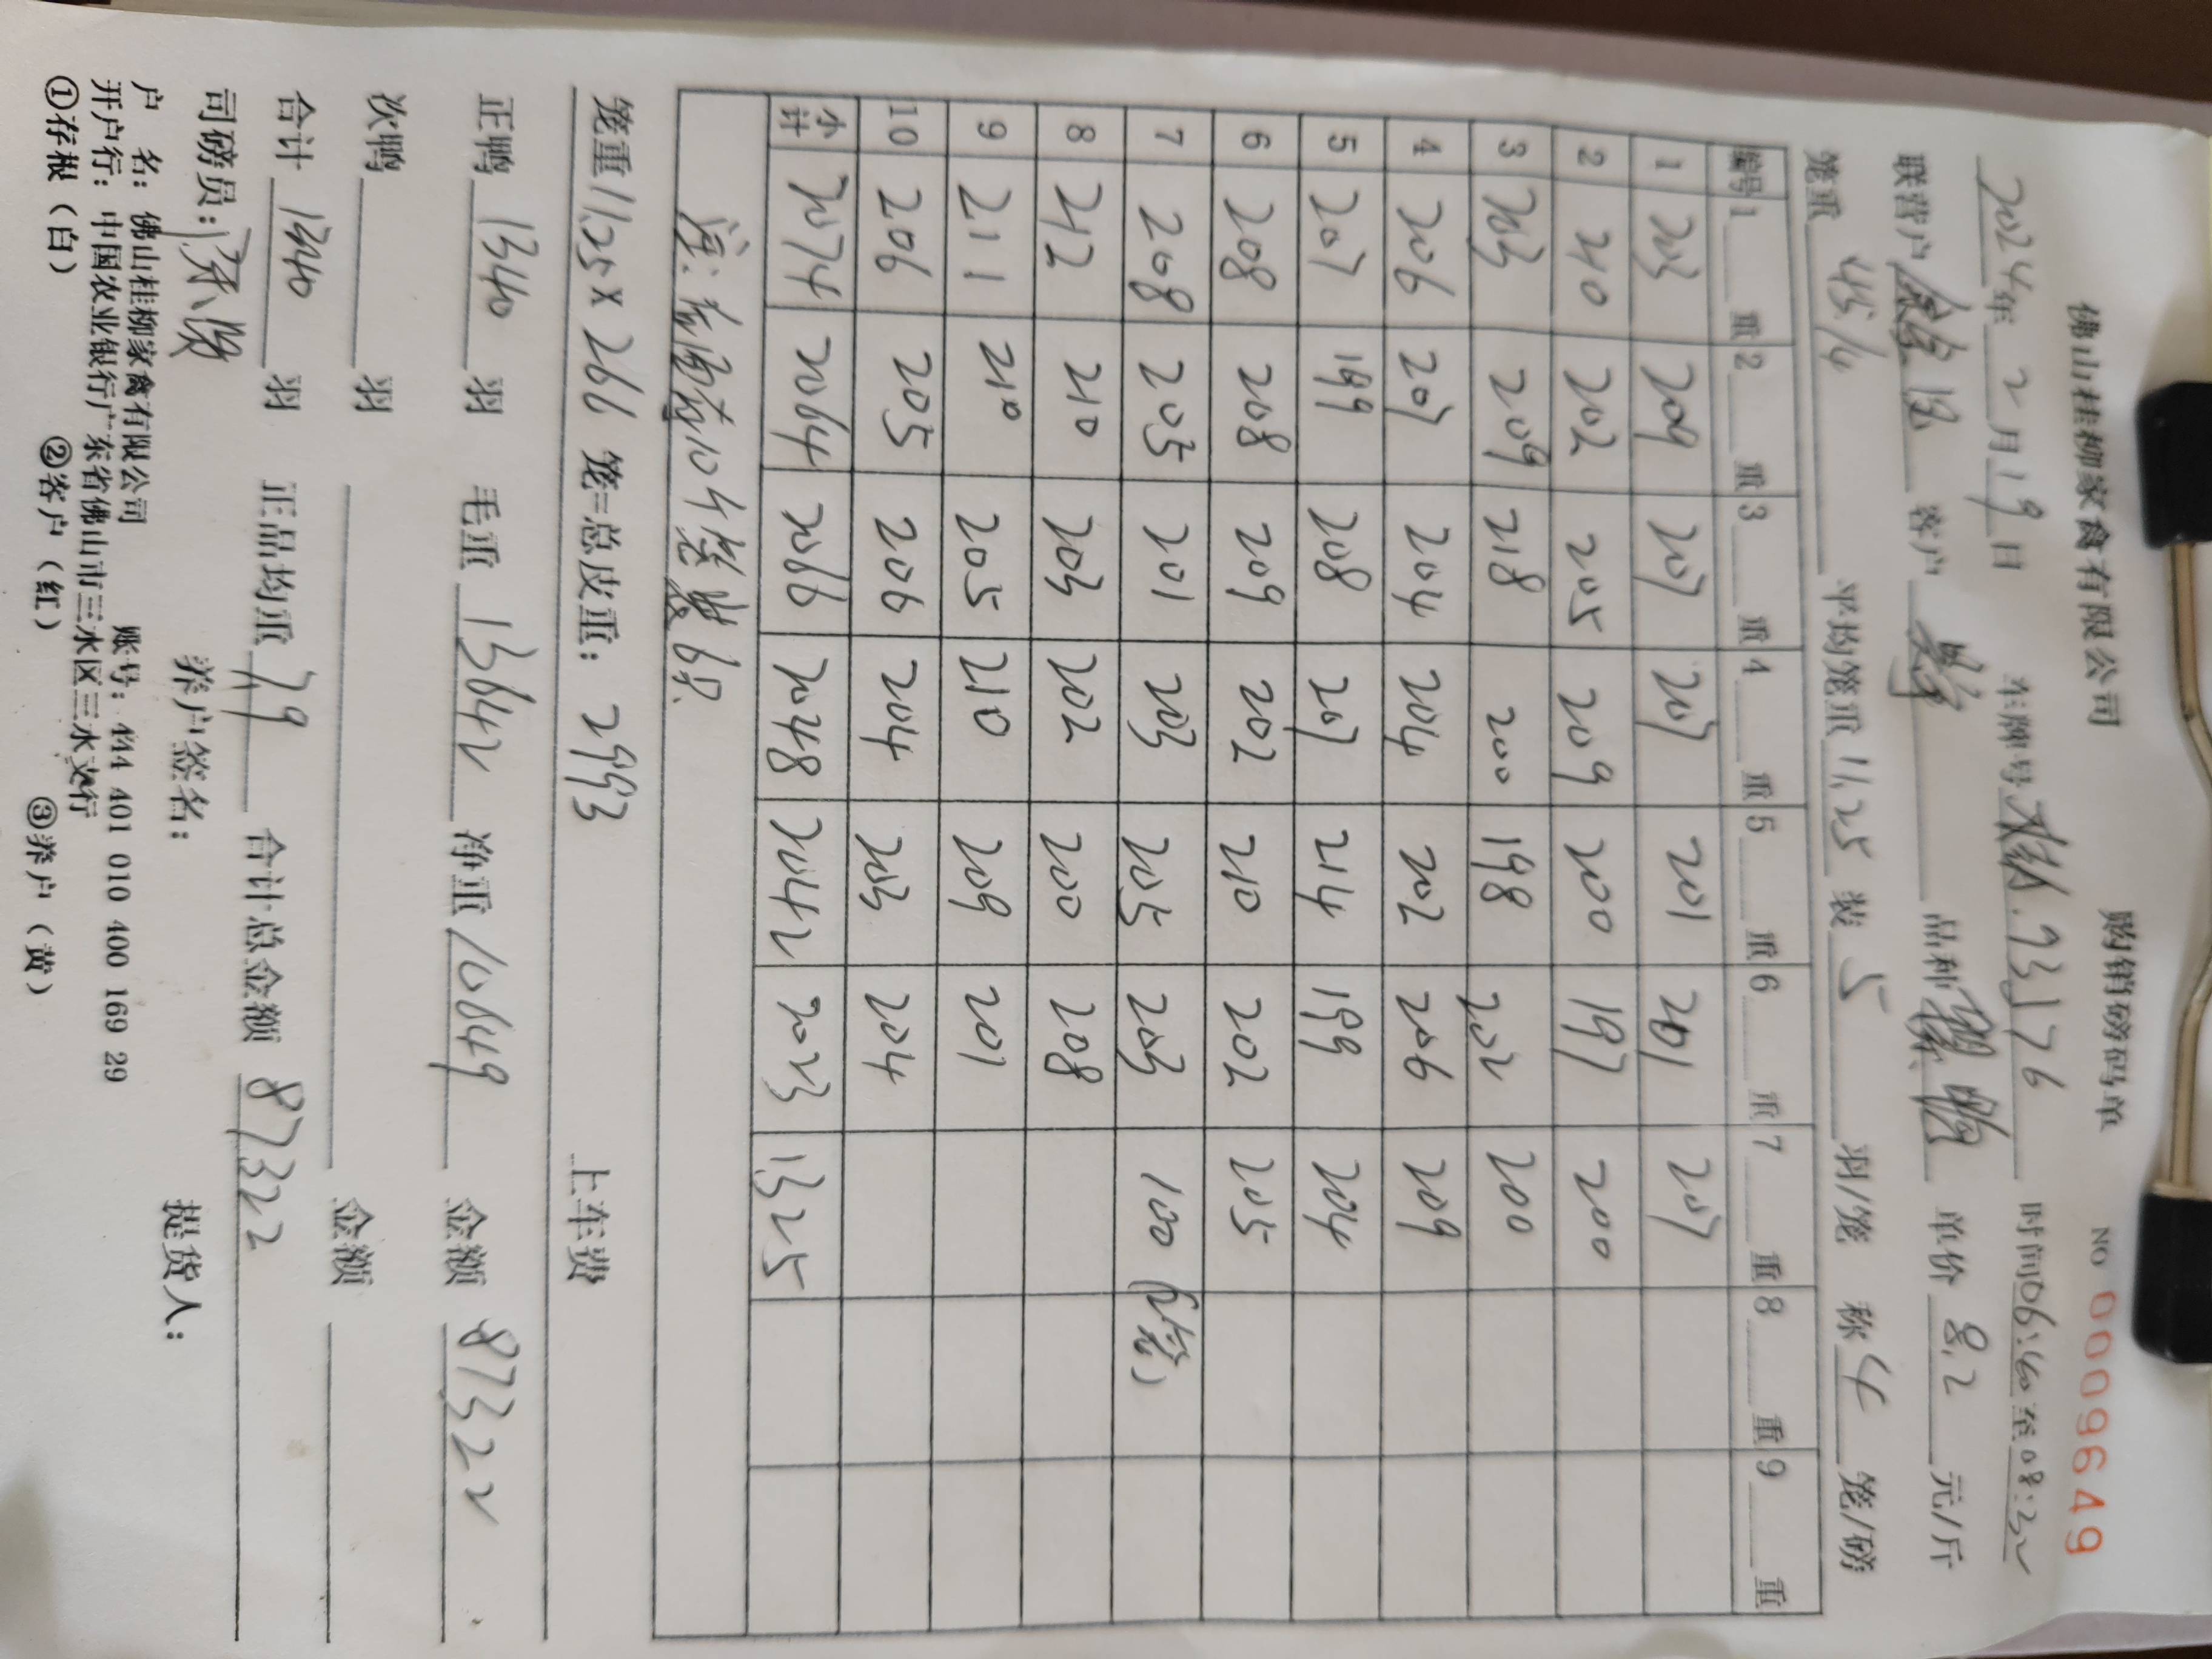 佛山桂柳家禽有限公司 购销磅码单 NO 0009649
2024年2月19日 车牌号 .93176 时间06:40至08:32
联营户 客户 品种 鸭 单价8.2元/斤
笼重45/4 平均笼重11.25装5羽/笼 称4笼/磅
编号 1 重 2 重 3 重 4 重 5 重 6 重 7 重 8 重 9 重
1 203 209 207 207 201 201 207
2 210 202 205 209 200 197 200
3 203 209 218 200 198 202 200
4 206 207 204 204 202 206 209
5 207 199 208 207 214 199 204
6 208 208 209 202 210 202 205
7 208 205 201 203 205 203 100（2笼）
8 212 210 203 202 200 208
9 211 210 205 210 209 201
10 206 205 206 204 203 204
小计 2074 2064 2066 2048 2042 2023 1325
注: 10个笼装6只.
笼重11.25×266笼=总皮重：2993 上车费
正鸭1340羽 毛重13642 净重10649 金额87322
次鸭 羽 金额
合计1340羽 正品均重7.9 合计总金额87322
司磅员： 养户签名： 提货人：
户 名：佛山桂柳家禽有限公司 账号：444 401 010 400 169 29
开户行：中国农业银行广东省佛山市三水区三水支行
①存根（白） ②客户（红） ③养户（黄）